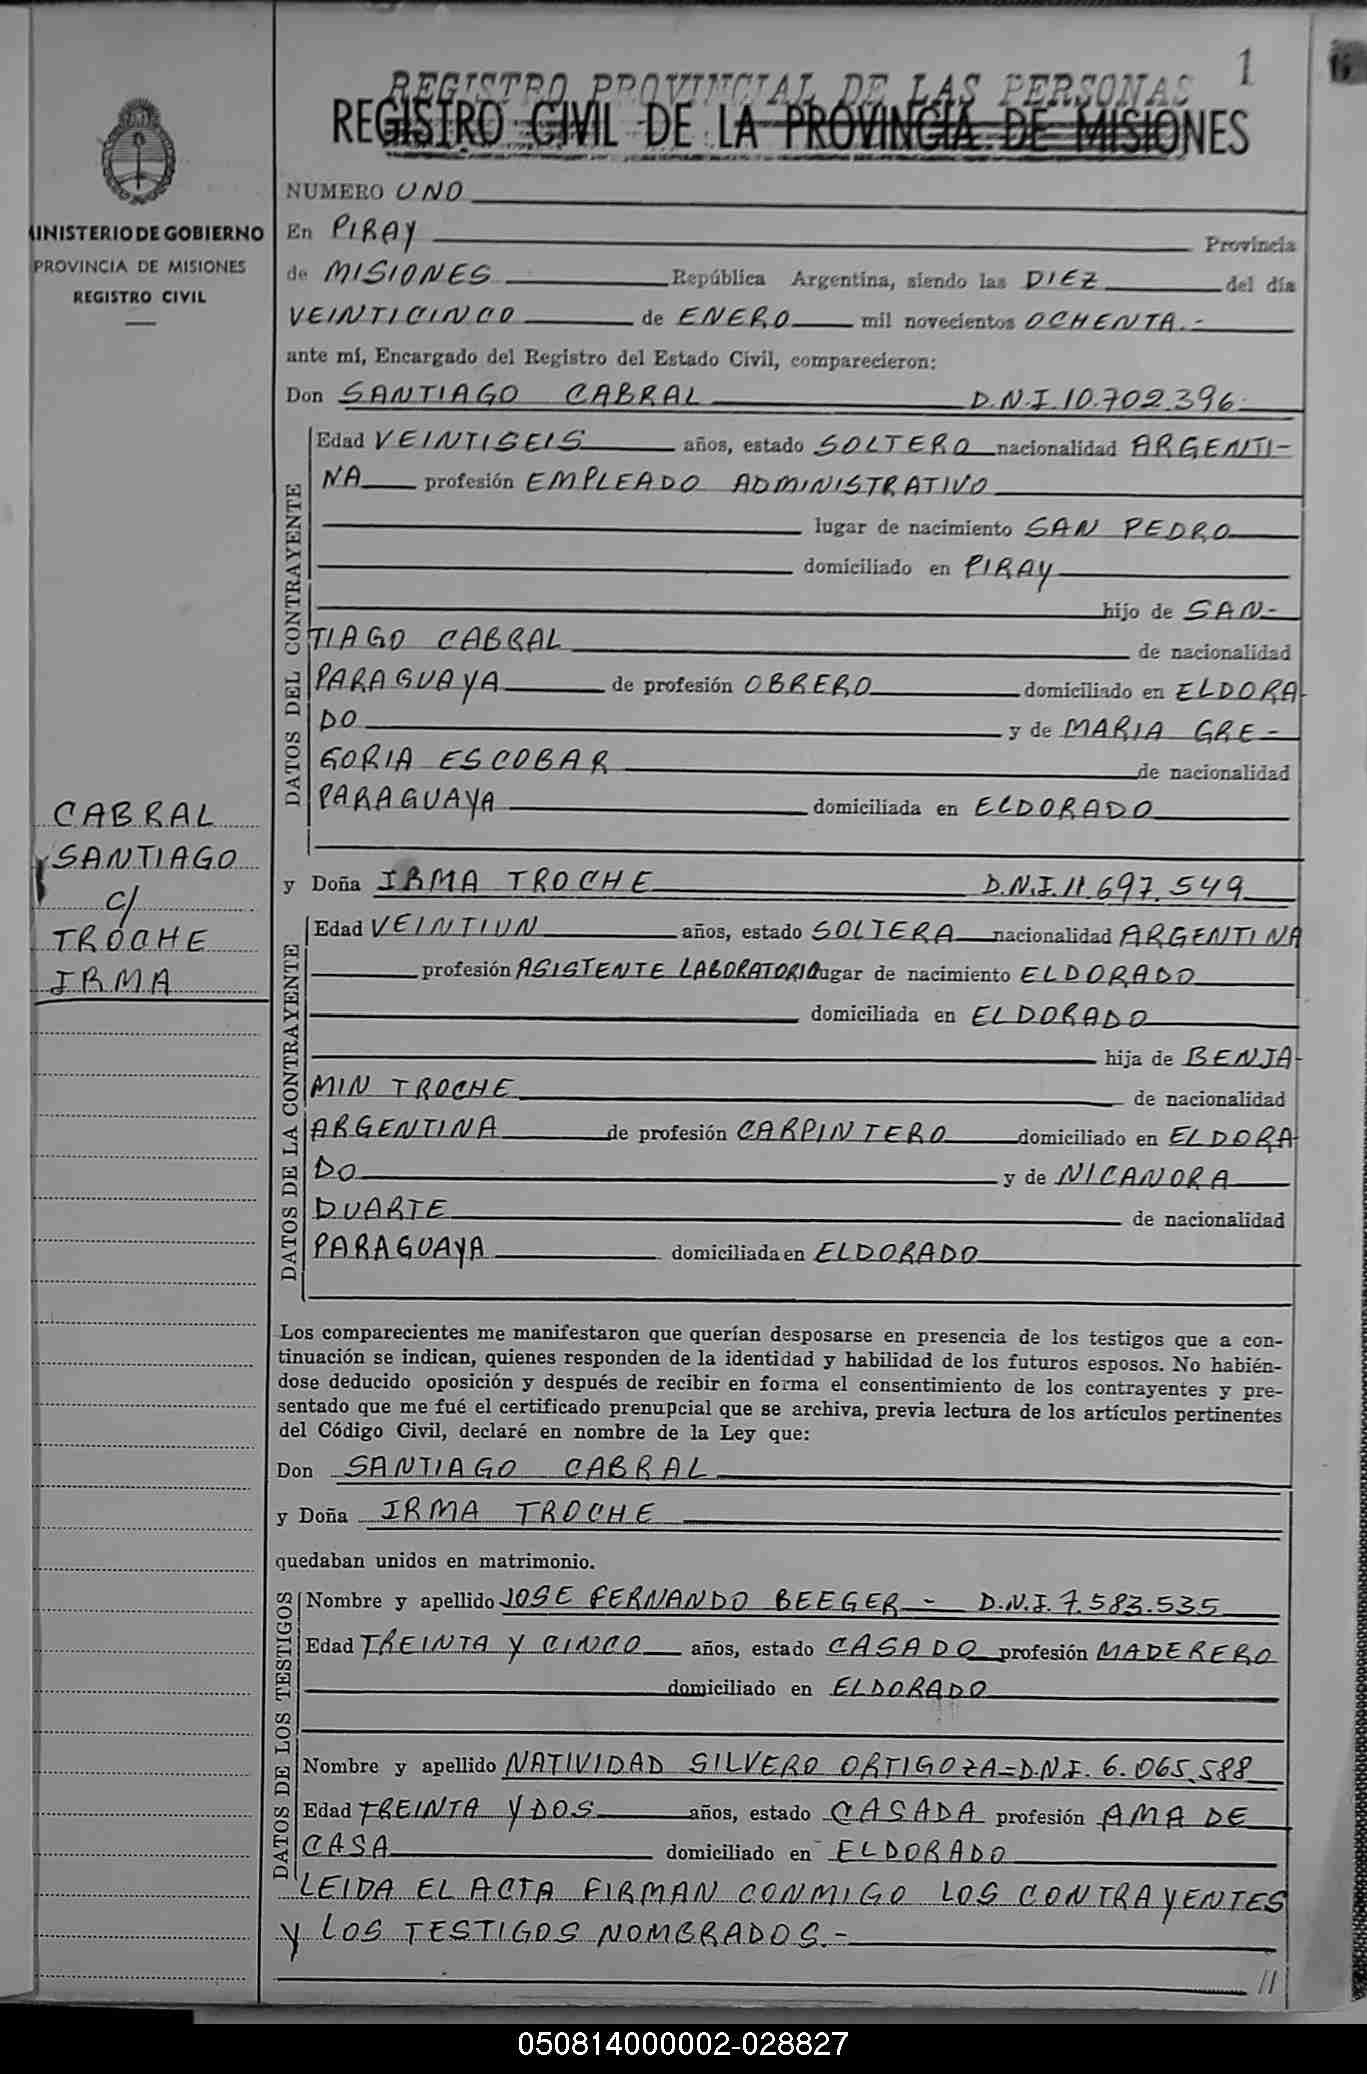 1
REGISTRO PROVINCIAL DE LAS PERSONAS
REGISTRO CIVIL DE LA PROVINCIA DE MISIONES
MINISTERIO DE GOBIERNO
PROVINCIA DE MISIONES
REGISTRO CIVIL
CABRAL
SANTIAGO
c/
TROCHE
IRMA
NUMERO UNO
En PIRAY Provincia
de MISIONES República Argentina, siendo las DIEZ del día
VEINTICINCO de ENERO mil novecientos OCHENTA.-
ante mí, Encargado del Registro del Estado Civil, comparecieron:
Don SANTIAGO CABRAL D.N.I.10.702.396.
DATOS DEL CONTRAYENTE
Edad VEINTISEIS años, estado SOLTERO nacionalidad ARGENTI-
NA profesión EMPLEADO ADMINISTRATIVO
lugar de nacimiento SAN PEDRO
domiciliado en PIRAY
hijo de SAN-
TIAGO CABRAL de nacionalidad
PARAGUAYA de profesión OBRERO domiciliado en ELDORA
DO y de MARIA GRE-
GORIA ESCOBAR de nacionalidad
PARAGUAYA domiciliada en ELDORADO
y Doña IRMA TROCHE D.N.I.11.697.549
DATOS DE LA CONTRAYENTE
Edad VEINTIUN años, estado SOLTERA nacionalidad ARGENTINA
profesión ASISTENTE LABORATORIO lugar de nacimiento ELDORADO
domiciliada en ELDORADO
hija de BENJA-
MIN TROCHE de nacionalidad
ARGENTINA de profesión CARPINTERO domiciliado en ELDORA-
DO y de NICANORA
DUARTE de nacionalidad
PARAGUAYA domiciliada en ELDORADO
Los comparecientes me manifestaron que querían desposarse en presencia de los testigos que a con-
tinuación se indican, quienes responden de la identidad y habilidad de los futuros esposos. No habién-
dose deducido oposición y después de recibir en forma el consentimiento de los contrayentes y pre-
sentado que me fué el certificado prenupcial que se archiva, previa lectura de los artículos pertinentes
del Código Civil, declaré en nombre de la Ley que:
Don SANTIAGO CABRAL
y Doña IRMA TROCHE
quedaban unidos en matrimonio.
DATOS DE LOS TESTIGOS
Nombre y apellido JOSE FERNANDO BEEGER - D.N.I.7.583.535
Edad TREINTA Y CINCO años, estado CASADO profesión MADERERO
domiciliado en ELDORADO
Nombre y apellido NATIVIDAD SILVERO ORTIGOZA-D.N.I. 6.065.588
Edad TREINTA Y DOS años, estado CASADA profesión AMA DE
CASA domiciliado en ELDORADO
LEIDA EL ACTA FIRMAN CONMIGO LOS CONTRAYENTES
Y LOS TESTIGOS NOMBRADOS.-
//
050814000002-028827